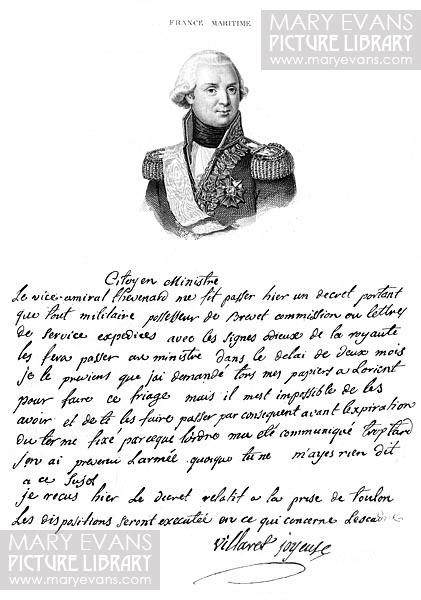 MARY EVANS
PICTURE LIBRARY
www.maryevans.com
FRANCE MARITIME
Citoyen Ministre
Le vice-amiral thevenard me fit passer hier un decret portant
que tout militaire possesseur de Brevet commission ou lettres
de service expediées avec les signes odieux de la royauté
les fera passer au ministre dans le delai de deux mois
je te previens que jai demandé tous mes papiers a Lorient
pour faire ce triage mais il mest impossible de les
avoir et de te les faire passer par consequent avant lexpiration
du terme fixé parceque lordre ma eté communiqué trop tard
jen ai prevenu Larmée quoique tu ne m'ayes rien dit
a ce Sujet
je recus hier Le decret relatif a la prise de toulon
Les dispositions seront executée en ce qui concerne Lescadre
villaret joyeuse
MARY EVANS
PICTURE LIBRARY
www.maryevans.com